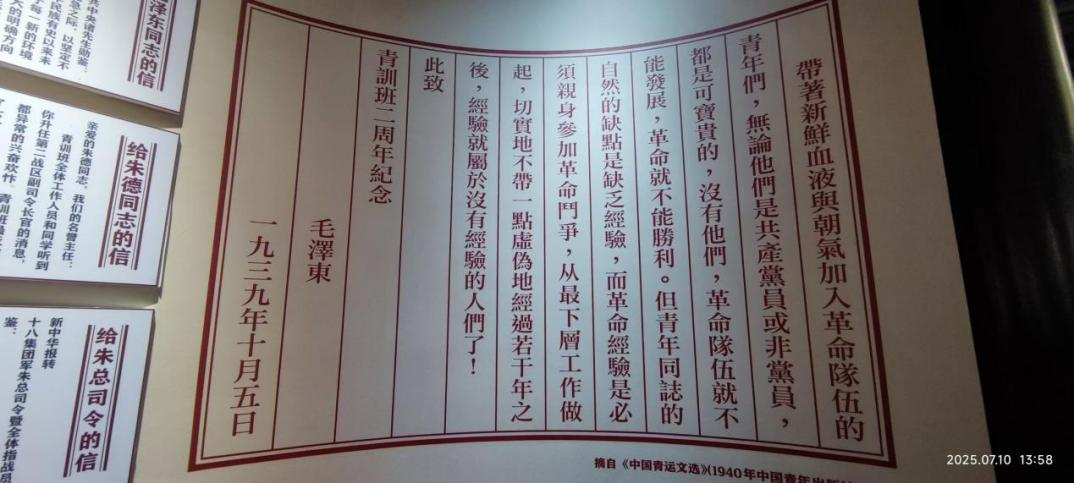 帶著新鮮血液與朝氣加入革命隊伍的
青年們，無論他們是共產黨員或非黨員，
都是可寶貴的，沒有他們，革命隊伍就不
能發展，革命就不能勝利。但青年同誌的
自然的缺點是缺乏經驗，而革命經驗是必
須親身參加革命鬥爭，从最下層工作做
起，切實地不帶一點虛偽地經過若干年之
後，經驗就屬於沒有經驗的人們了！
此致
青訓班二周年紀念
毛澤東
一九三九年十月五日
摘自《中国青运文选》(1940年中国青年出版
泽东同志的信
共中央诸先生勋鉴：
急之际，以坚定不
民族有史以来未
每一新的环境
大的明确方向
给朱德同志的信
亲爱的朱德同志，我们的名誉主任：
青训班全体工作人员和同学听到
你升任第二战区副司令长官的消息，
都异常的兴奋欢忭。青训班
给朱总司令的信
新中华报转
十八集团军朱总司令暨全体指战员
鉴：
2025.07.10 13:58